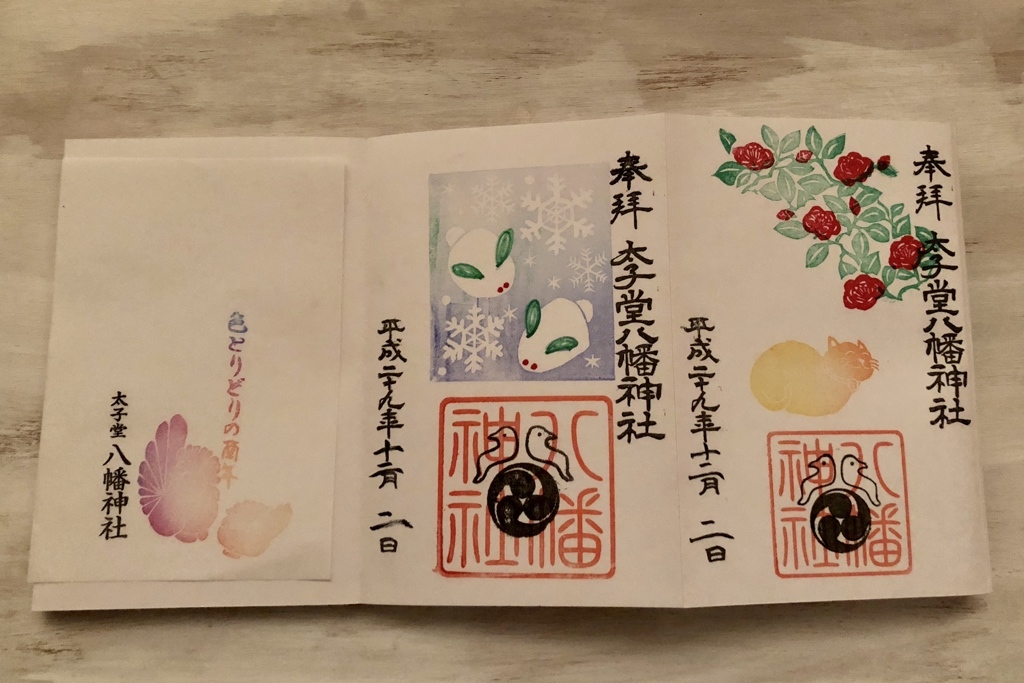 奉拝 太子堂八幡神社
平成二十九年十二月 二日
八幡
神社
奉拝 太子堂八幡神社
平成二十九年十二月 二日
八幡
神社
色とりどりの酉年
太子堂 八幡神社